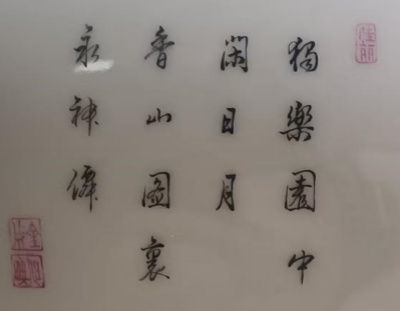 獨樂園中
閑日月
香山圖裏
永神僊